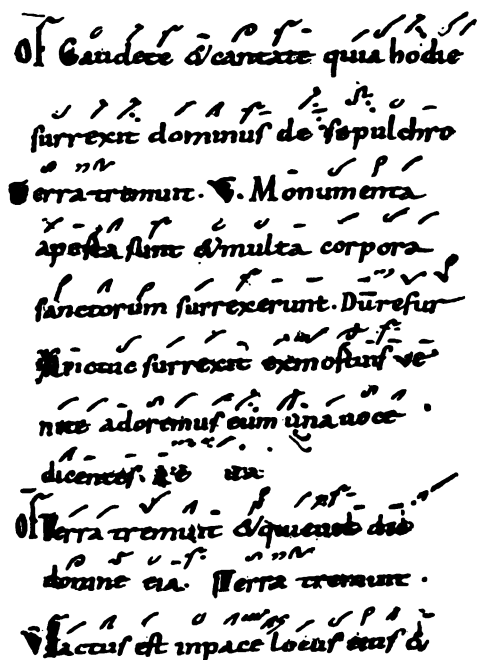 Of Gaudete & cantate quia hodie
surrexit dominus de sepulchro
Terra tremuit. V. Monumenta
aperta sunt & multa corpora
sanctorum surrexerunt. Dū resur
surrexit ve
nite adoremus eum una uoce
dicentes.
Of Terra tremuit & quieuit dū
domine eia. Terra tremuit .
V factus est inpace locus eius &